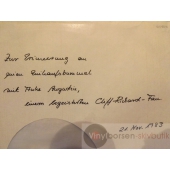 Zur Erinnerung an
einen Einkaufsbummel
mit Frau Augustin,
einem begeisterten Cliff-Richard-Fan
21. Nov. 1983
Vinyl-börsen-shop.tk